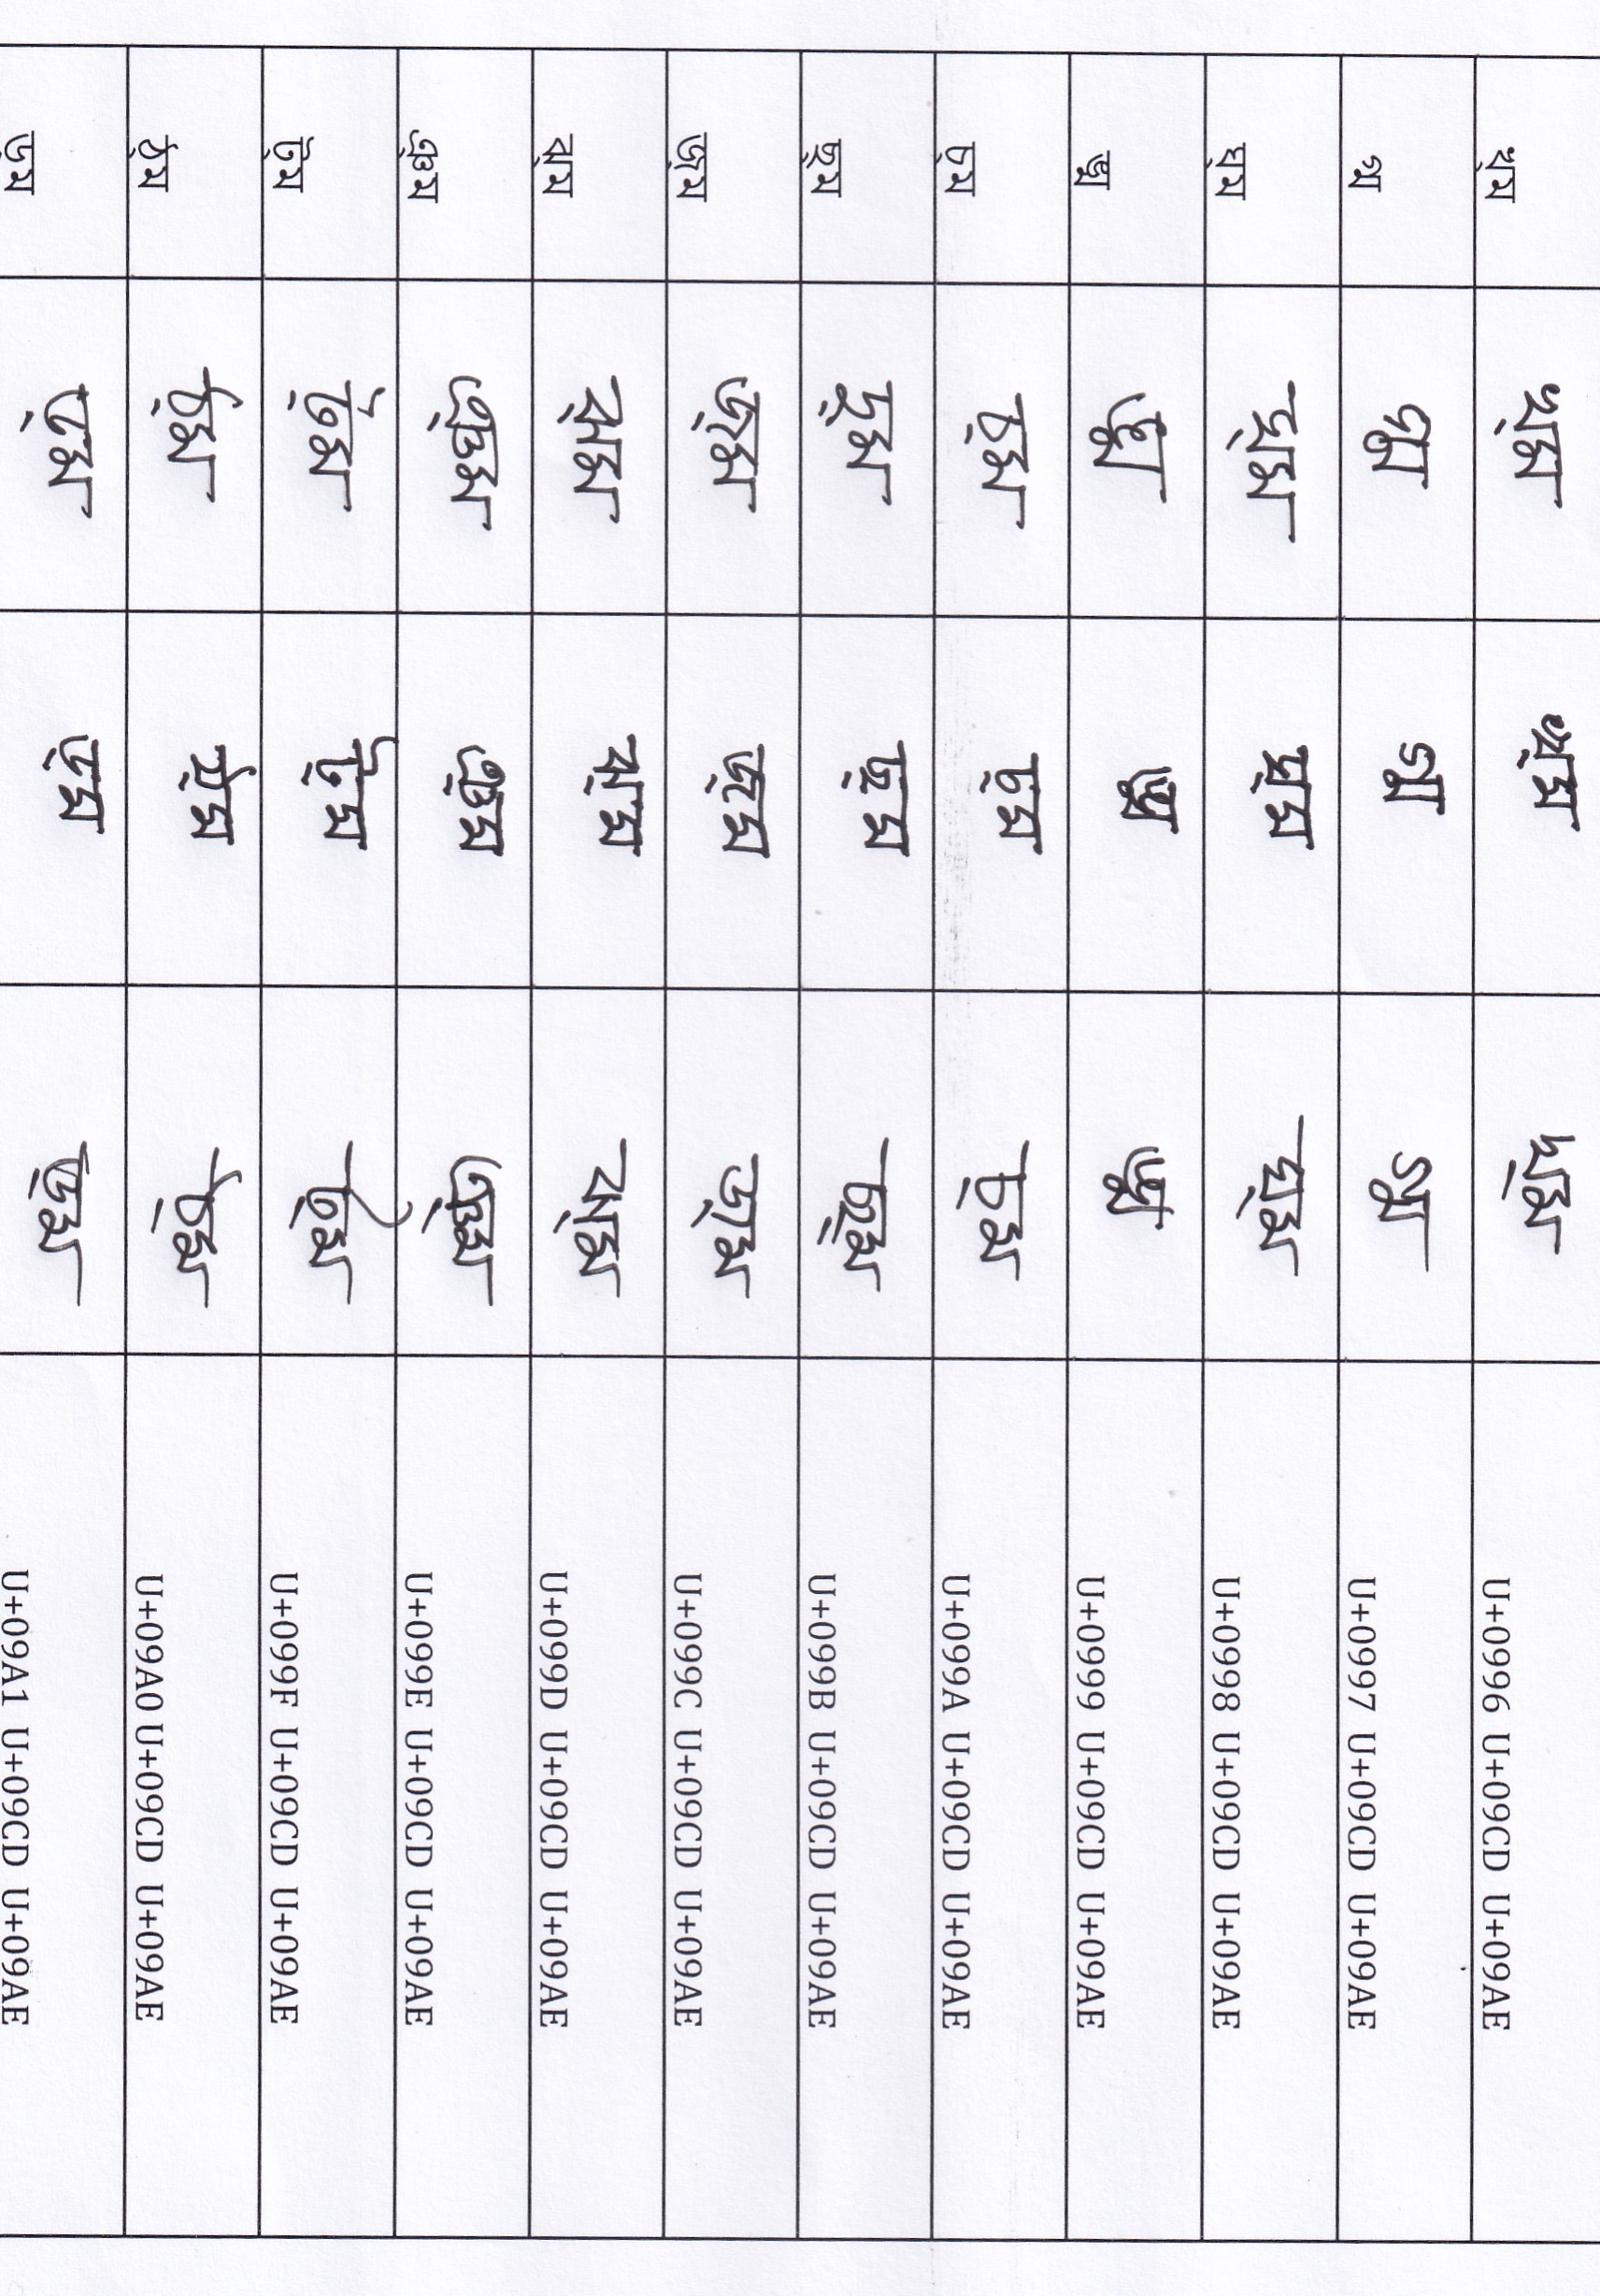 খ্ম খ্ম খ্ম খ্ম U+0996 U+09CD U+09AE
গ্ম গ্ম গ্ম গ্ম U+0997 U+09CD U+09AE
ঘ্ম ঘ্ম ঘ্ম ঘ্ম U+0998 U+09CD U+09AE
ঙ্ম ঙ্ম ঙ্ম ঙ্ম U+0999 U+09CD U+09AE
চ্ম চ্ম চ্ম চ্ম U+099A U+09CD U+09AE
ছ্ম ছ্ম ছ্ম ছ্ম U+099B U+09CD U+09AE
জ্ম জ্ম জ্ম জ্ম U+099C U+09CD U+09AE
ঝ্ম ঝ্ম ঝ্ম ঝ্ম U+099D U+09CD U+09AE
ঞ্ম ঞ্ম ঞ্ম ঞ্ম U+099E U+09CD U+09AE
ট্ম ট্ম ট্ম ট্ম U+099F U+09CD U+09AE
ঠ্ম ঠ্ম ঠ্ম ঠ্ম U+09A0 U+09CD U+09AE
ড্ম ড্ম ড্ম ড্ম U+09A1 U+09CD U+09AE